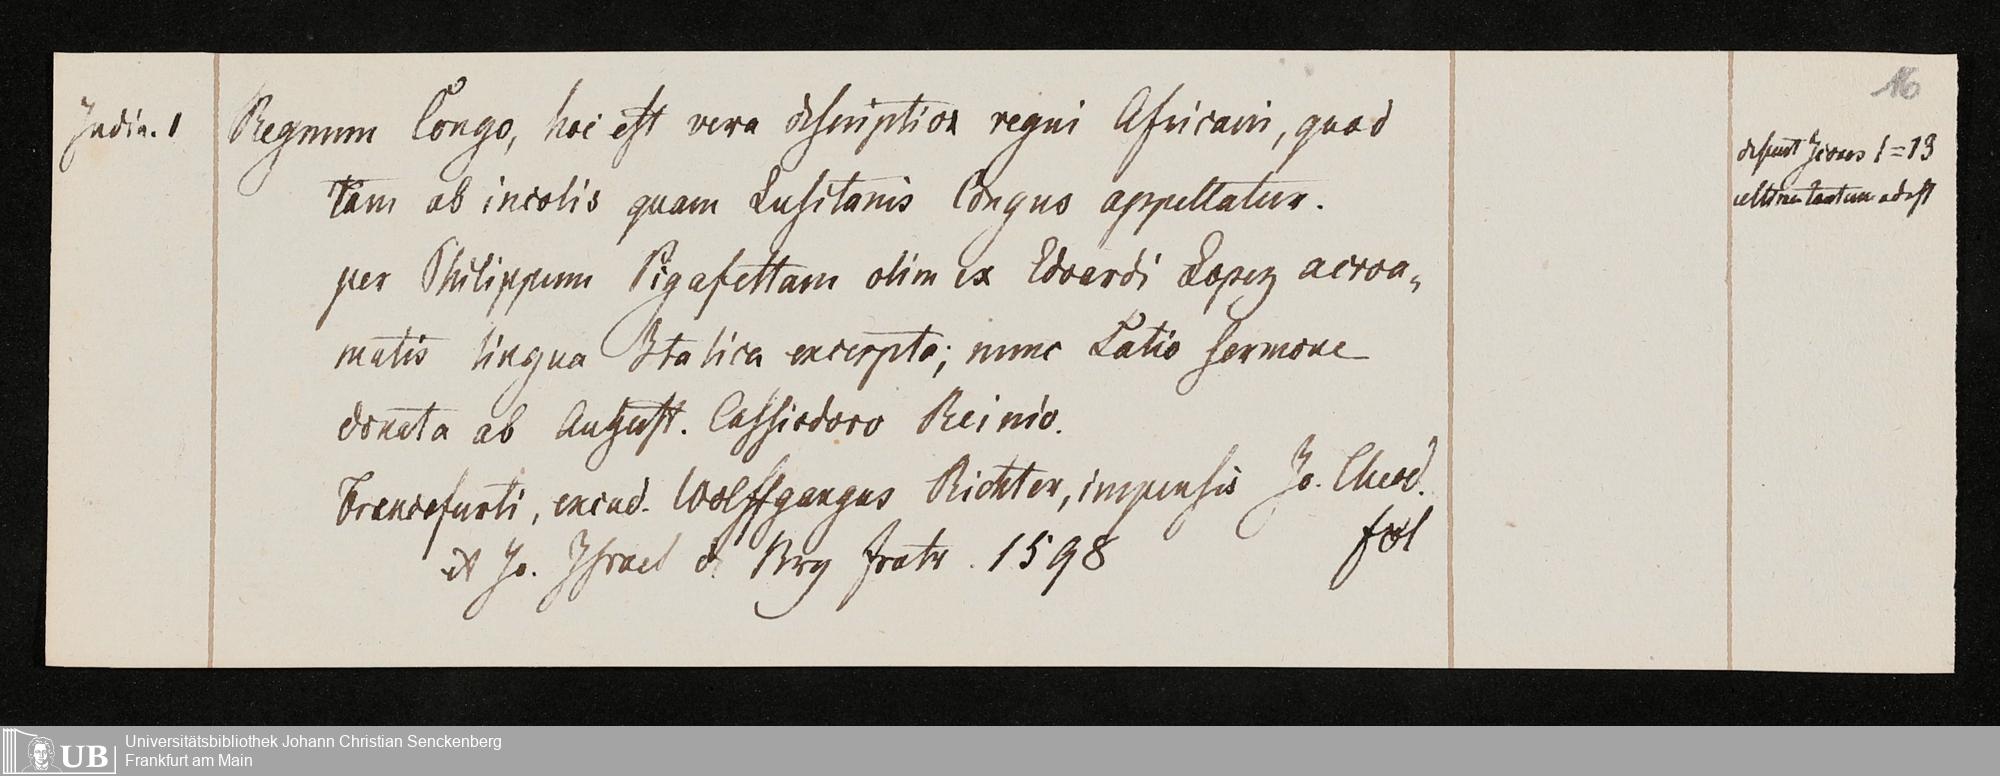 India. 1
Regnum Congo, hoc est vera descriptio regni Africani, quod
tam ab incolis quam Lusitanis Congus appellatur.
per Philippum Pigafettam olim ex Edoardi Lopez acroa„
matis lingua Italica excerpta; nunc Latio sermone
donata ab August. Cassiodoro Reinio.
Francofurti, excud. Wolffgangus Richter, impensis Jo. Theod.
et Jo. Israel de Bry fratr. 1598 fol
16
desunt Icones 1=13
ultima tantum adest
UB
Universitätsbibliothek Johann Christian Senckenberg
Frankfurt am Main